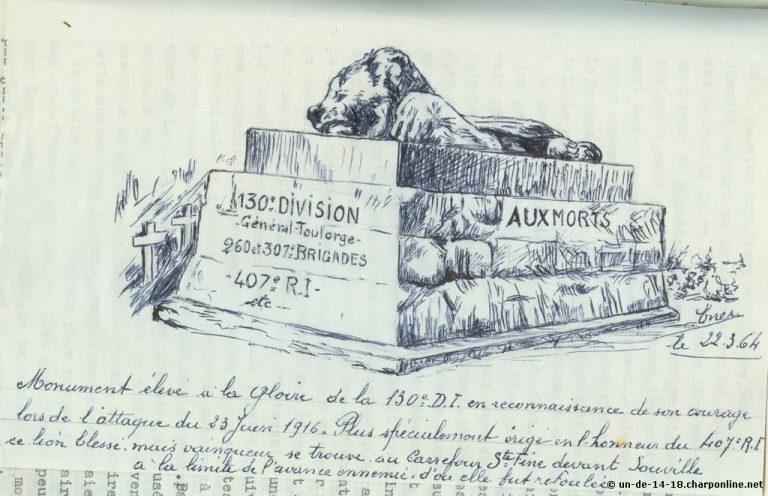 130e DIVISION
-Général-Toulorge-
260 et 307e BRIGADES
-407e R.I-
etc—
AUX MORTS
le 22.3.64
Monument élevé à la gloire de la 130e D.I. en reconnaissance de son courage
lors de l'attaque du 23 Juin 1916. Plus spécialement érigé en l'honneur du 407e R.I
ce lion blessé, mais vainqueur se trouve au Carrefour Ste Fine devant Souville
à la limite de l'avance ennemie, d'où elle fut refoulée
© un-de-14-18.charponline.net